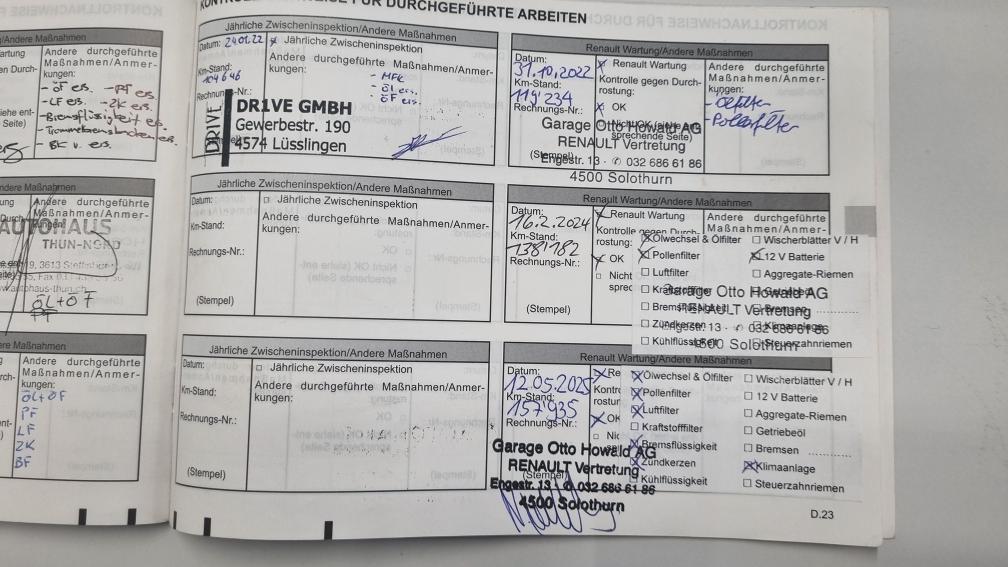 KONTROLLNACHWEISE FÜR DURCHGEFÜHRTE ARBEITEN
/Andere Maßnahmen
Andere durchgeführte
Maßnahmen/Anmer-
kungen:
- ÖF ers. - PF ers.
- LF ers. - ZK ers.
- Bremsflüssigkeit ers.
Andere durchgeführte
Maßnahmen/Anmer-
kungen:
AUTOHAUS
THUN-NORD
ÖL+ÖF
PF
Andere durchgeführte
Maßnahmen/Anmer-
kungen:
ÖL+ÖF
PF
LF
ZK
BF
Jährliche Zwischeninspektion/Andere Maßnahmen
Datum: 24.01.22
x Jährliche Zwischeninspektion
Km-Stand: 104646
Andere durchgeführte Maßnahmen/Anmer-
kungen:
- MFK
- ÖL ers.
- ÖF ers.
Rechnungs-Nr.:
DRIVE
DR1VE GMBH
Gewerbestr. 190
4574 Lüsslingen
Renault Wartung/Andere Maßnahmen
Datum: 31.10.2022
x Renault Wartung
Km-Stand: 119'234
Kontrolle gegen Durch-
rostung:
Rechnungs-Nr.:
x OK
Andere durchgeführte
Maßnahmen/Anmer-
kungen:
- Ölfilter
- Pollenfilter
(Stempel)
Garage Otto Howald AG
RENAULT Vertretung
Engestr. 13 · ✆ 032 686 61 86
4500 Solothurn
Jährliche Zwischeninspektion/Andere Maßnahmen
Datum:
□ Jährliche Zwischeninspektion
Km-Stand:
Andere durchgeführte Maßnahmen/Anmer-
kungen:
Rechnungs-Nr.:
(Stempel)
Renault Wartung/Andere Maßnahmen
Datum: 16.2.2024
x Renault Wartung
Km-Stand: 138'182
Kontrolle gegen Durch-
rostung:
Rechnungs-Nr.:
x OK
□ Nicht
(Stempel)
Andere durchgeführte
Maßnahmen/Anmer-
x Ölwechsel & Ölfilter □ Wischerblätter V / H
x Pollenfilter x 12 V Batterie
□ Luftfilter □ Aggregate-Riemen
□ Kraftstofffilter □ Getriebeöl
□ Bremsflüssigkeit □ Bremsen
□ Zündkerzen □ Klimaanlage
□ Kühlflüssigkeit □ Steuerzahnriemen
Garage Otto Howald AG
RENAULT Vertretung
Engestr. 13 · ✆ 032 686 61 86
4500 Solothurn
Jährliche Zwischeninspektion/Andere Maßnahmen
Datum:
□ Jährliche Zwischeninspektion
Km-Stand:
Andere durchgeführte Maßnahmen/Anmer-
kungen:
Rechnungs-Nr.:
(Stempel)
Renault Wartung/Andere Maßnahmen
Datum: 12.05.2025
x Re
Km-Stand: 157'935
Kontr
rostur
Rechnungs-Nr.:
x OK
□ Nic
x Ölwechsel & Ölfilter □ Wischerblätter V / H
x Pollenfilter □ 12 V Batterie
x Luftfilter □ Aggregate-Riemen
□ Kraftstofffilter □ Getriebeöl
x Bremsflüssigkeit □ Bremsen
x Zündkerzen x Klimaanlage
□ Kühlflüssigkeit □ Steuerzahnriemen
Garage Otto Howald AG
RENAULT Vertretung
Engestr. 13 · ✆ 032 686 61 86
4500 Solothurn
D.23